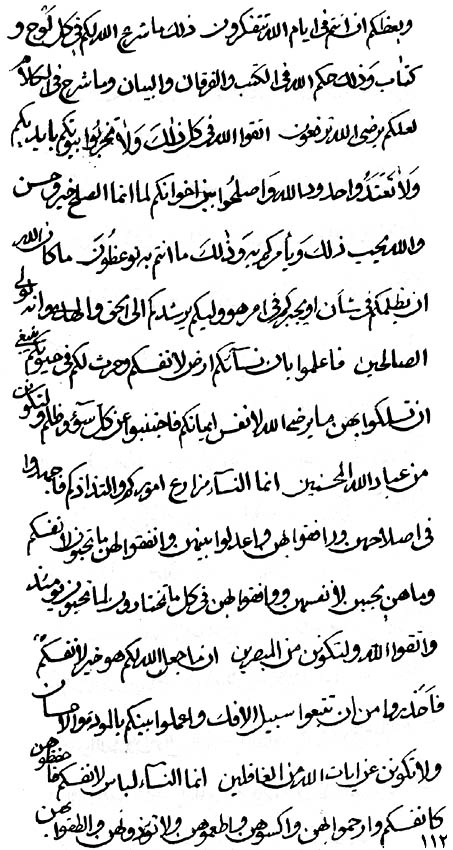 ويعظكم ان انتم فى ايام الله تتفكرون ذلك ما شرع الله لكم فى كل لوح و
كتاب وذلك حكم الله فى الكتب والفرقان والبيان وما شرع فى الكلام
لعلكم برضى الله ترفعون اتقوا الله فى كل ذلك ولا تخربوا بيوتكم بايديكم
ولا تعتدوا حدود الله واصلحوا بين اخوانكم لما انما الصلح خير وحسن
والله يحب ذلك ويأمركم به وذلك ما انتم به توعظون ما كان الله
ان يظلمكم فى شأن او يجبركم فى امر هو وليكم يرشدكم الى الحق والهدى وانه يتولى
الصالحين فاعلموا بان نسآئكم ارض لانفسكم وحرث لكم فى حيوتكم ينبغى
ان تسلكوا بهن ما يرضى الله لانفس ايمانكم فاجتنبوا عن كل سوء وظلم ولتكونن
من عباد الله المحسنين انما النسآء مزارع اموركم والتذاذكم فاجهدوا
فى اصلاحهن ورافقوا لهن واعدلوا بينهن وانفقوا لهن ما تحبون لانفسكم
وما هن يحببن لأنفسهن ووافقوا لهن فى كل ما تختارون لما تحبون يومئذ
واتقوا الله ولتكونن من المبصرين ان ما جعل الله لكم هو خير لانفسكم
فأحذروا من ان تتبعوا سبيل الافك واعملوا بينكم بالمودة والاحسان
ولا تكونن عن ايات الله من الغافلين انما النسآء لباس لانفسكم فاحفظوهن
كانفسكم وارحموا لهن واكسوهن واطعموهن ولا تؤذونهن والطفوا بهن
١١٢